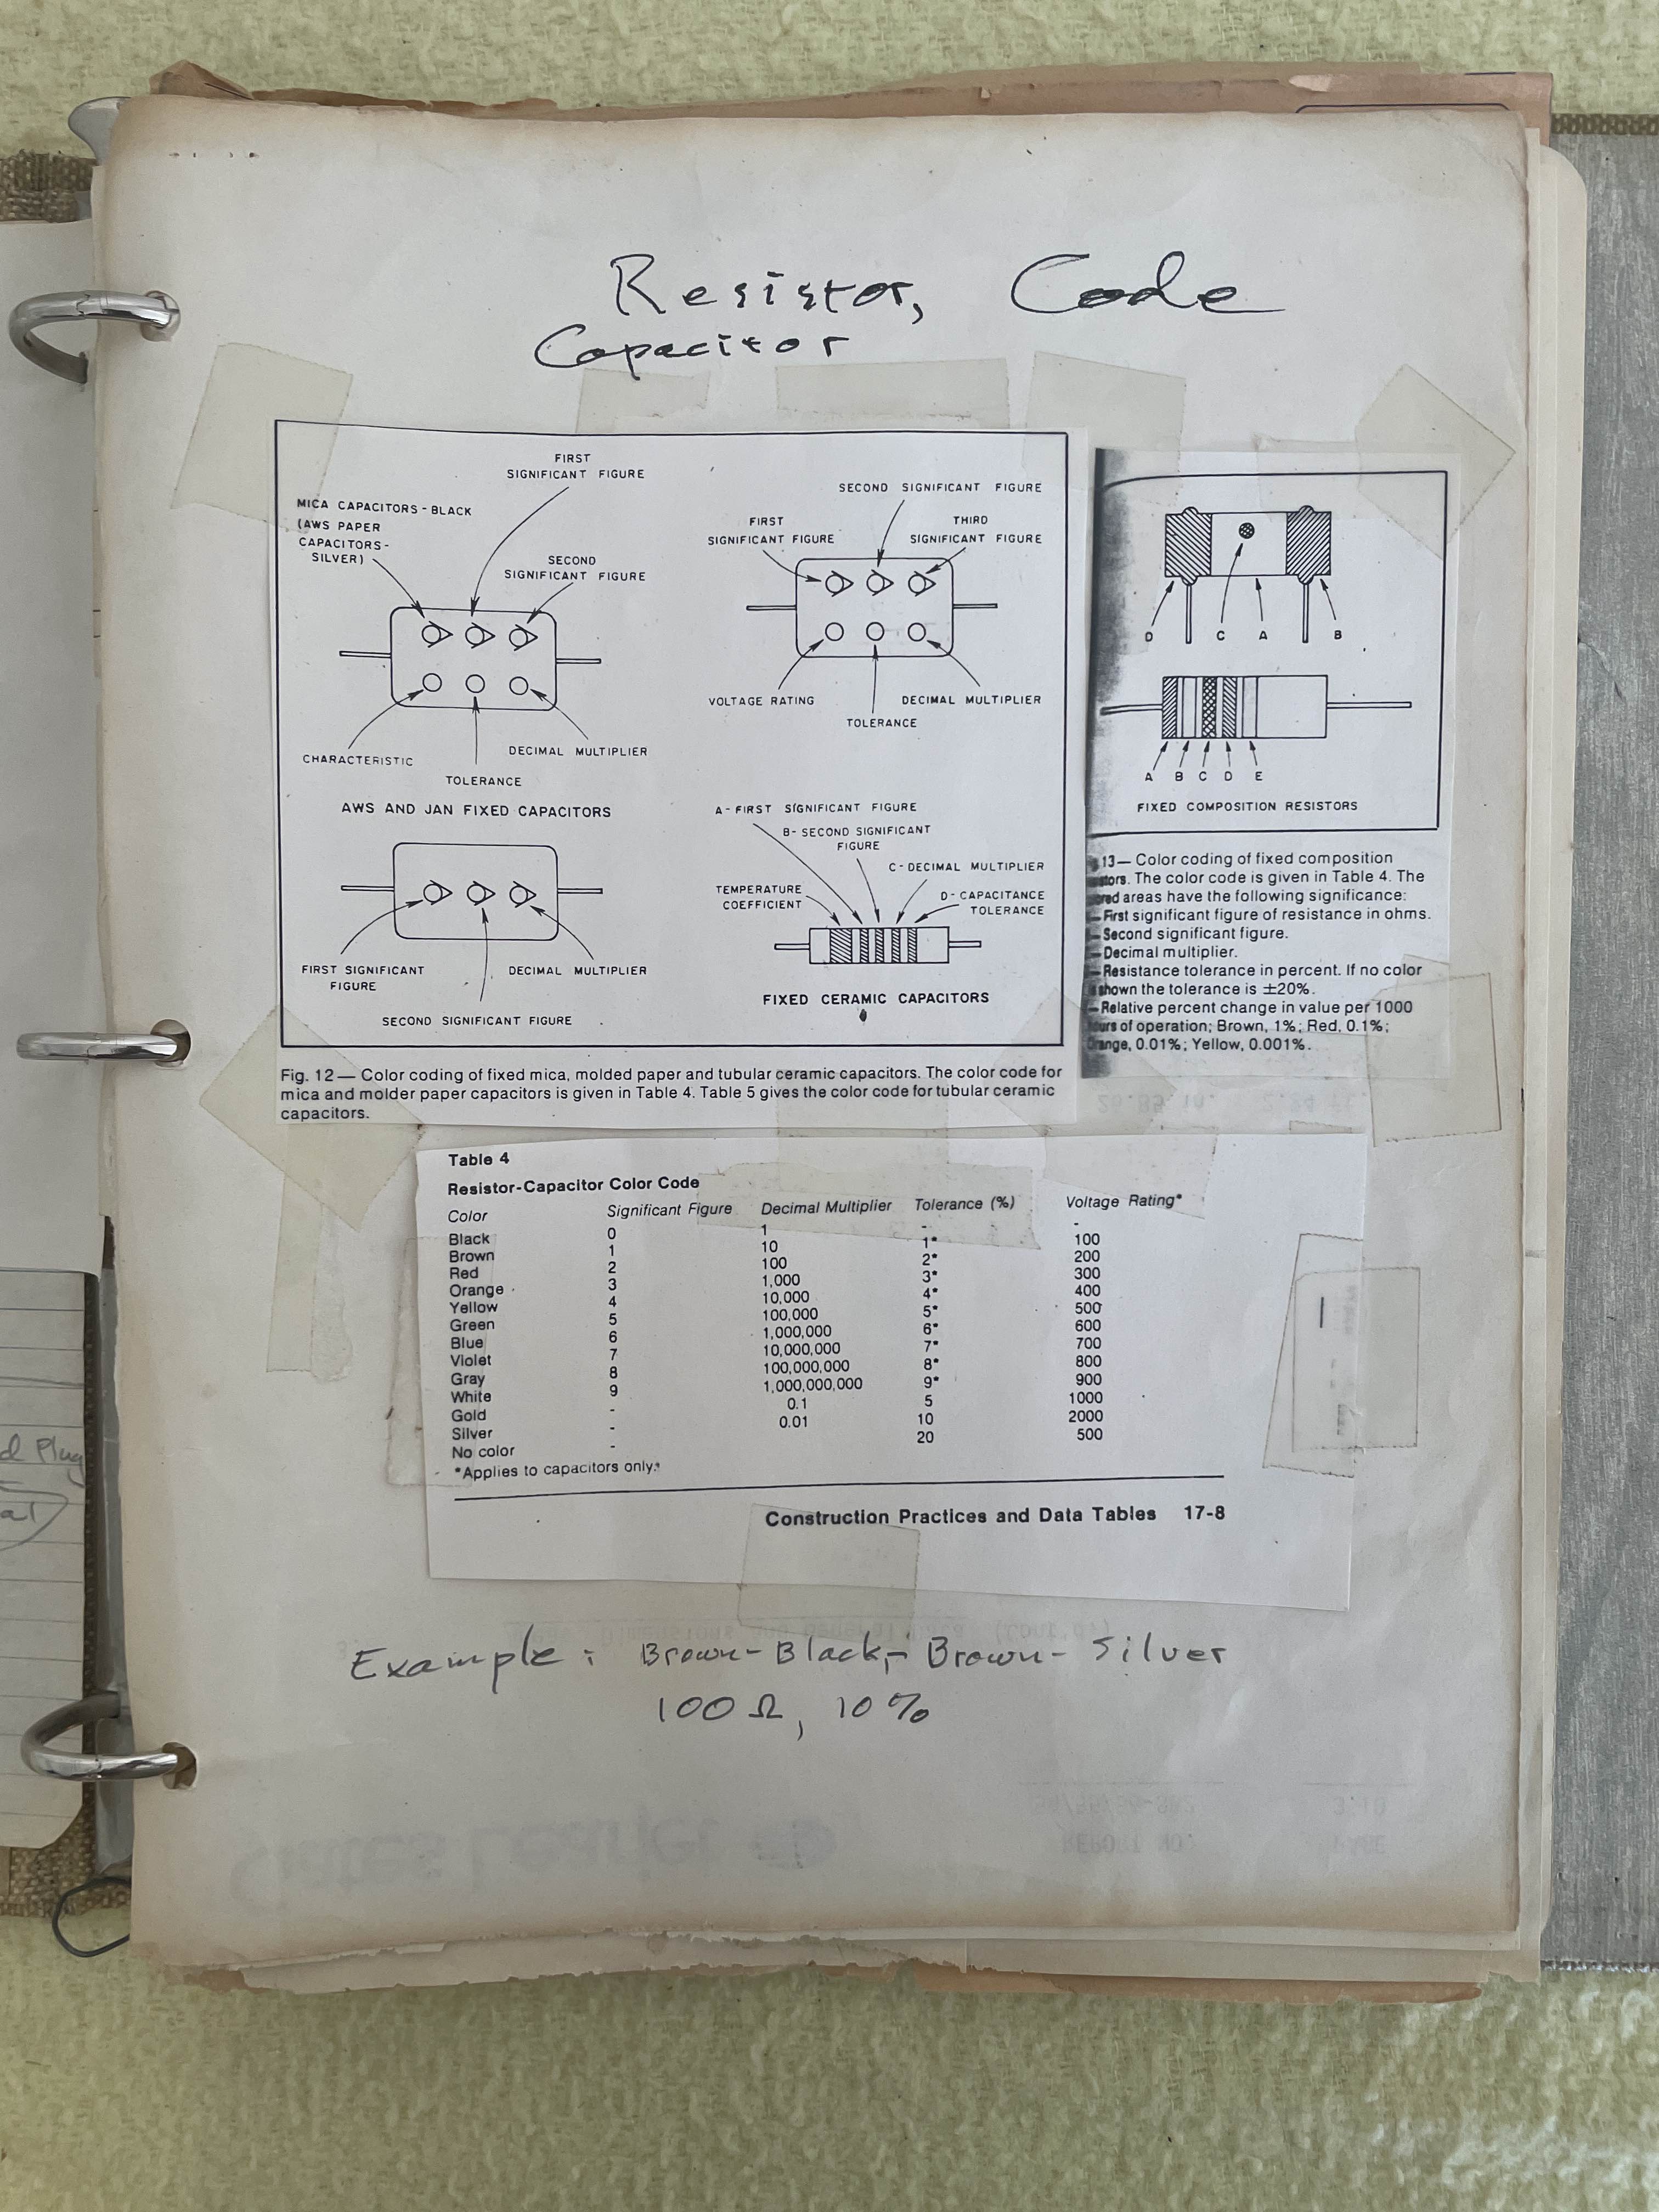 Resistor, Code
Capacitor
FIRST
SIGNIFICANT FIGURE
MICA CAPACITORS - BLACK
(AWS PAPER
CAPACITORS-
SILVER)
SECOND
SIGNIFICANT FIGURE
CHARACTERISTIC
TOLERANCE
DECIMAL MULTIPLIER
AWS AND JAN FIXED CAPACITORS
SECOND SIGNIFICANT FIGURE
FIRST
SIGNIFICANT FIGURE
THIRD
SIGNIFICANT FIGURE
VOLTAGE RATING
TOLERANCE
DECIMAL MULTIPLIER
FIRST SIGNIFICANT
FIGURE
SECOND SIGNIFICANT FIGURE
DECIMAL MULTIPLIER
A- FIRST SIGNIFICANT FIGURE
B- SECOND SIGNIFICANT
FIGURE
C- DECIMAL MULTIPLIER
TEMPERATURE
COEFFICIENT
D- CAPACITANCE
TOLERANCE
FIXED CERAMIC CAPACITORS
Fig. 12 — Color coding of fixed mica, molded paper and tubular ceramic capacitors. The color code for
mica and molder paper capacitors is given in Table 4. Table 5 gives the color code for tubular ceramic
capacitors.
D C A B
A B C D E
FIXED COMPOSITION RESISTORS
13— Color coding of fixed composition
The color code is given in Table 4. The
areas have the following significance:
—First significant figure of resistance in ohms.
—Second significant figure.
—Decimal multiplier.
—Resistance tolerance in percent. If no color
shown the tolerance is ±20%.
—Relative percent change in value per 1000
of operation; Brown, 1%; Red, 0.1%;
0.01%; Yellow, 0.001%.
Table 4
Resistor-Capacitor Color Code
Color Significant Figure Decimal Multiplier Tolerance (%) Voltage Rating*
Black 0 1 - -
Brown 1 10 1* 100
Red 2 100 2* 200
Orange 3 1,000 3* 300
Yellow 4 10,000 4* 400
Green 5 100,000 5* 500
Blue 6 1,000,000 6* 600
Violet 7 10,000,000 7* 700
Gray 8 100,000,000 8* 800
White 9 1,000,000,000 9* 900
Gold - 0.1 5 1000
Silver - 0.01 10 2000
No color - 20 500
*Applies to capacitors only.*
Construction Practices and Data Tables 17-8
Example: Brown-Black-Brown-Silver
100 Ω, 10%
d Plug
al)